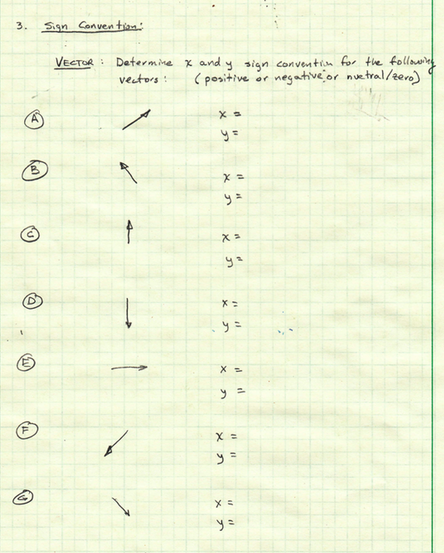 3. Sign Convention:
VECTOR: Determine x and y sign convention for the following
vectors: (positive or negative or nuetral/zero)
A
x =
y =
B
x =
y =
C
x =
y =
D
x =
y =
E
x =
y =
F
x =
y =
G
x =
y =